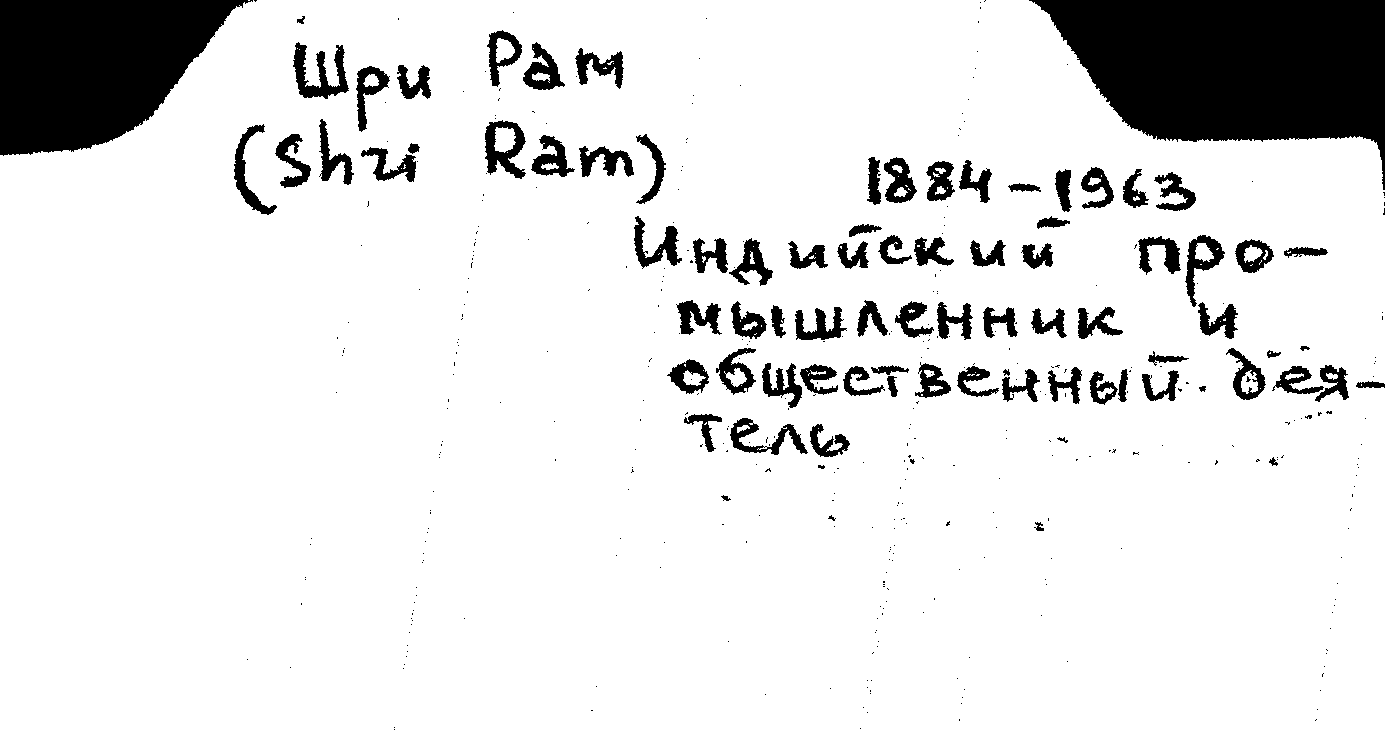 Шри Рам
(Shri Ram)
1884-1963
Индийский про-
мышленник и
общественный дея-
тель